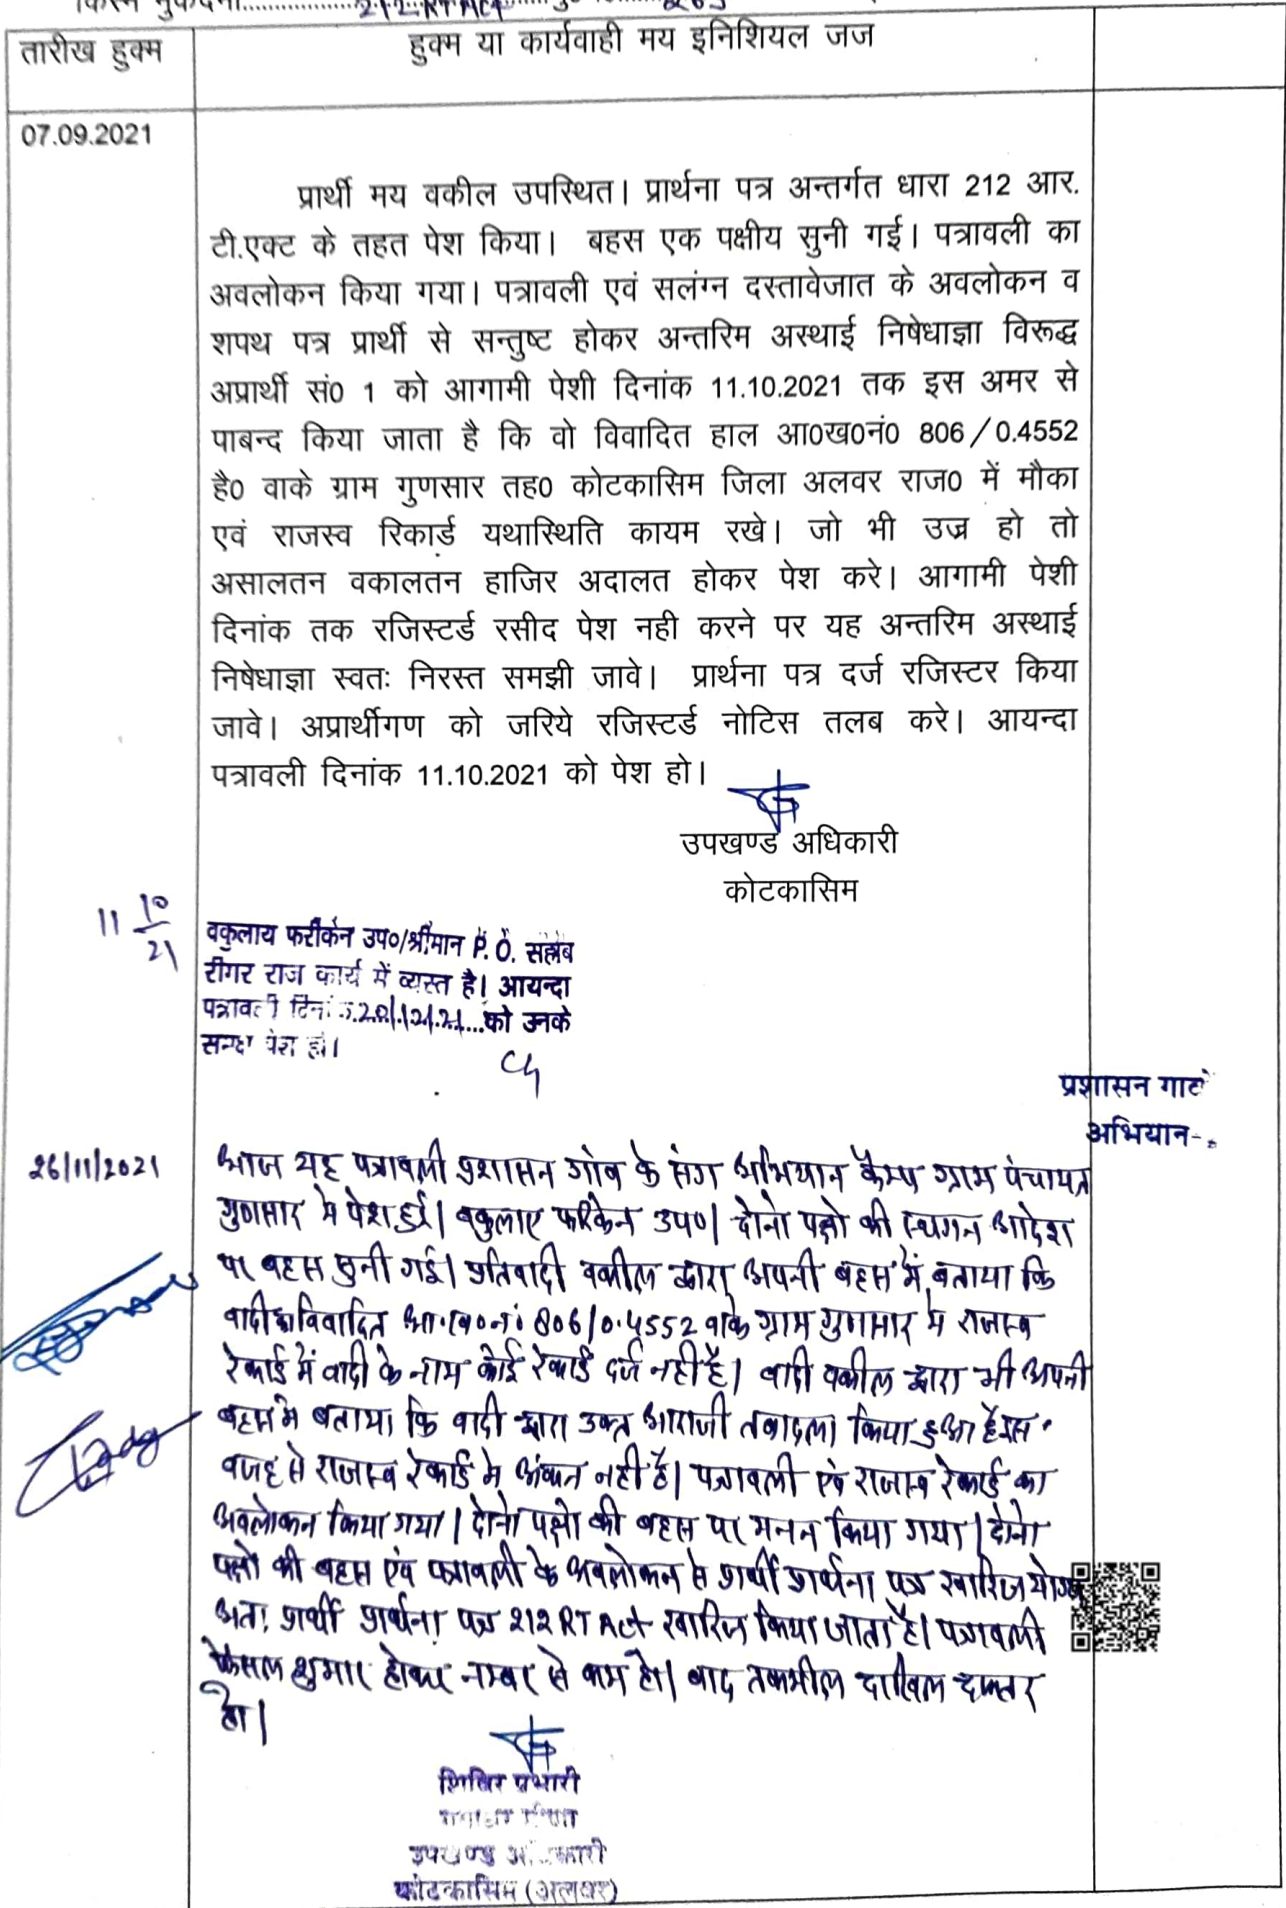 किस्म मुकदमा 212 RT Act
तारीख हुक्म
हुक्म या कार्यवाही मय इनिशियल जज
07.09.2021
प्रार्थी मय वकील उपस्थित। प्रार्थना पत्र अन्तर्गत धारा 212 आर.
टी.एक्ट के तहत पेश किया। बहस एक पक्षीय सुनी गई। पत्रावली का
अवलोकन किया गया। पत्रावली एवं सलंग्न दस्तावेजात के अवलोकन व
शपथ पत्र प्रार्थी से सन्तुष्ट होकर अन्तरिम अस्थाई निषेधाज्ञा विरूद्ध
अप्रार्थी सं0 1 को आगामी पेशी दिनांक 11.10.2021 तक इस अमर से
पाबन्द किया जाता है कि वो विवादित हाल आ0ख0नं0 806/0.4552
है0 वाके ग्राम गुणसार तह0 कोटकासिम जिला अलवर राज0 में मौका
एवं राजस्व रिकार्ड यथास्थिति कायम रखे। जो भी उज्र हो तो
असालतन वकालतन हाजिर अदालत होकर पेश करे। आगामी पेशी
दिनांक तक रजिस्टर्ड रसीद पेश नही करने पर यह अन्तरिम अस्थाई
निषेधाज्ञा स्वतः निरस्त समझी जावे। प्रार्थना पत्र दर्ज रजिस्टर किया
जावे। अप्रार्थीगण को जरिये रजिस्टर्ड नोटिस तलब करे। आयन्दा
पत्रावली दिनांक 11.10.2021 को पेश हो।
उपखण्ड अधिकारी
कोटकासिम
11 10/21
वकुलाय फरीकेन उप०/श्रीमान P. O. साहब
दीगर राज कार्य में व्यस्त है। आयन्दा
पत्रावली दिनांक को उनके
समक्ष पेश हो।
प्रशासन गावों
अभियान
26/11/2021
आज यह पत्रावली प्रशासन गांव के संग अभियान कैम्प ग्राम पंचायत
गुणसार मे पेश हुई। वकुलाए फरिकेन उप०। दोनो पक्षो की स्थगन आदेश
पर बहस सुनी गई। प्रतिवादी वकील द्वारा अपनी बहस में बताया कि
वादी का विवादित आ.ख०नं० 806/0.4552 वाके ग्राम गुणसार मे राजस्व
रेकार्ड में वादी के नाम कोई रेकार्ड दर्ज नही है। वादी वकील द्वारा भी अपनी
बहस मे बताया कि वादी द्वारा उक्त आराजी तबादला किया हुआ है इस
वजह से राजस्व रेकार्ड मे अंकन नही है। पत्रावली एवं राजस्व रेकार्ड का
अवलोकन किया गया। दोनो पक्षो की बहस पर मनन किया गया। दोनो
पक्षो की बहस एवं पत्रावली के अवलोकन से प्रार्थी प्रार्थना पत्र खारिज योग्य
अतः प्रार्थी प्रार्थना पत्र 212 RT Act खारिज किया जाता है। पत्रावली
फैसल शुमार होकर नम्बर से कम हो। बाद तकमील दाखिल दफ्तर
हो।
शिविर प्रभारी
उपखण्ड अधिकारी
कोटकासिम (अलवर)